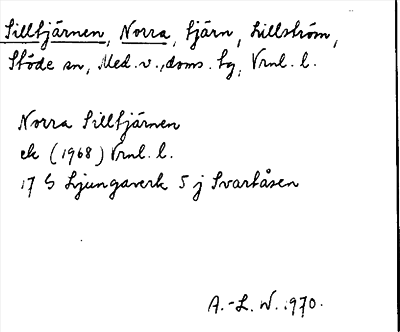 Silltjärnen, Norra, tjärn, Lillström,
Stöde sn, Med. v., doms. hg, Vrnl. l.
Norra Silltjärnen
ek (1968) Vrnl. l.
17 G Ljungaverk 5 j Svartåsen
A.-L. W. 1970.